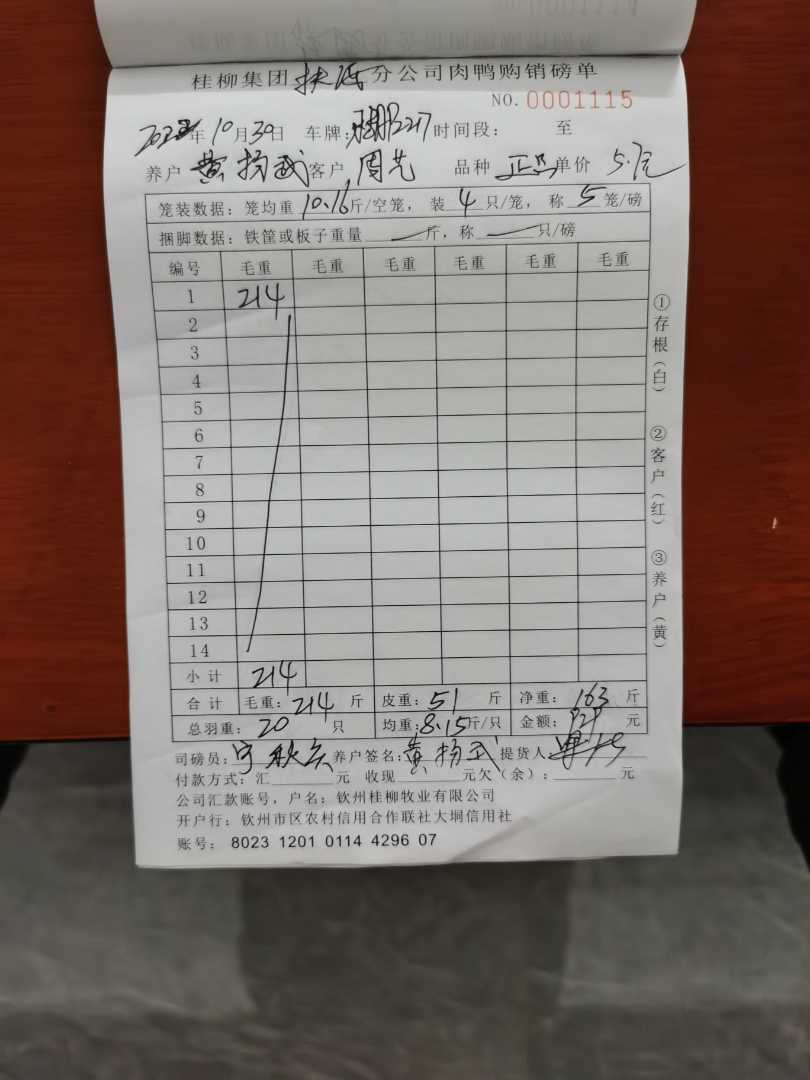 桂柳集团 分公司肉鸭购销磅单
NO. 0001115
年10月30日 车牌: 时间段: 至
养户 黄扬武 客户 周艺 品种 正品 单价 5.7元
笼装数据: 笼均重 10.16斤/空笼, 装 4 只/笼, 称 5 笼/磅
捆脚数据: 铁筐或板子重量 — 斤, 称 — 只/磅
编号 毛重 毛重 毛重 毛重 毛重 毛重
1 214
2
3
4
5
6
7
8
9
10
11
12
13
14
小计 214
合计 毛重: 214 斤 皮重: 51 斤 净重: 163 斤
总羽重: 20 只 均重: 8.15斤/只 金额: 929 元
司磅员: 养户签名: 黄扬武 提货人:
付款方式: 汇 元 收现 元欠(余): 元
公司汇款账号, 户名: 钦州桂柳牧业有限公司
开户行: 钦州市区农村信用合作联社大垌信用社
账号: 8023 1201 0114 4296 07
①存根(白) ②客户(红) ③养户(黄)